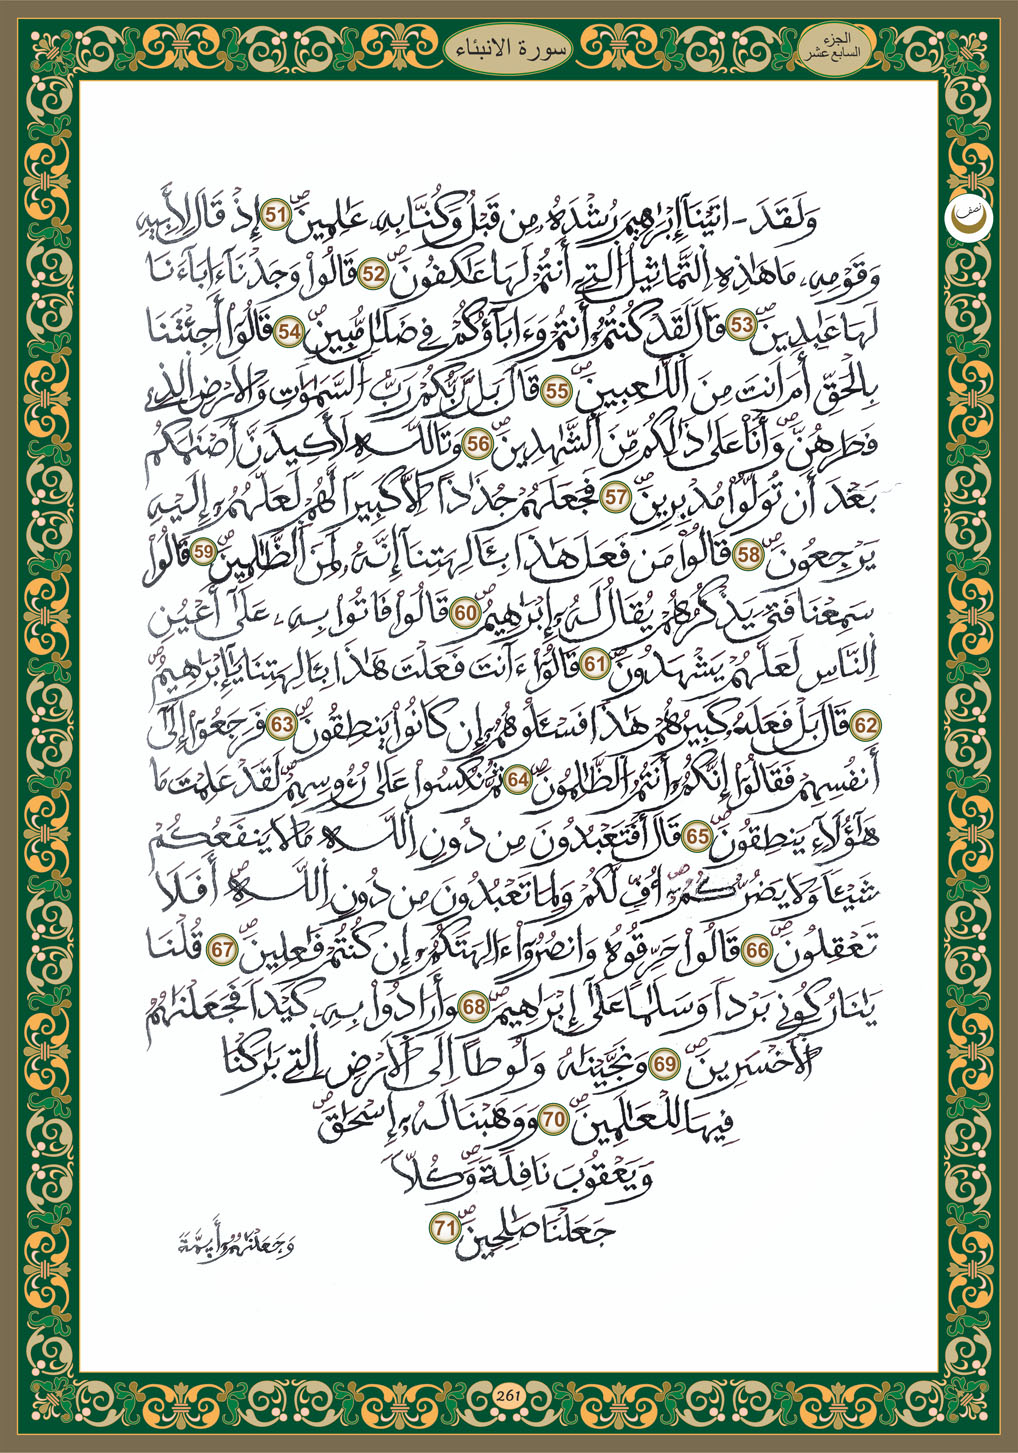 سورة الانبئاء
الجزء
السابع عشر
نصف
وَلَقَدَ - اتَيْنَآ إِبْرَاهِيمَ رُشْدَهُۥ مِن قَبْلُ وَكُنَّا بِهِۦ عَٰلِمِينَۖ 51 إِذْ قَالَ لِأَبِيهِ
وَقَوْمِهِۦ مَا هَٰذِهِ اِلتَّمَاثِيلُ اُلتِےٓ أَنتُمْ لَهَا عَٰكِفُونَۖ 52 قَالُواْ وَجَدْنَآ ءَابَآءَنَا
لَهَا عَٰبِدِينَۖ 53 قَالَ لَقَدْ كُنتُمُۥٓ أَنتُمْ وَءَابَآؤُكُمْ فِے ضَلَٰلٖ مُّبِينٖۖ 54 قَالُوٓاْ أَجِئْتَنَا
بِالْحَقِّ أَمَ اَنتَ مِنَ اَللَّٰعِبِينَۖ 55 قَالَ بَل رَّبُّكُمْ رَبُّ اُلسَّمَٰوَٰتِ وَالَارْضِ اِلذِے
فَطَرَهُنَّۖ وَأَنَا۠ عَلَىٰ ذَٰلِكُم مِّنَ اَلشَّٰهِدِينَۖ 56 وَتَاللَّهِ لَأَكِيدَنَّ أَصْنَٰمَكُم
بَعْدَ أَن تُوَلُّواْ مُدْبِرِينَۖ 57 فَجَعَلَهُمْ جُذَٰذاً اِلَّا كَبِيراٗ لَّهُمْ لَعَلَّهُمُۥٓ إِلَيْهِ
يَرْجِعُونَۖ 58 قَالُواْ مَن فَعَلَ هَٰذَا بِـَٔالِهَتِنَآ إِنَّهُۥ لَمِنَ اَلظَّٰلِمِينَۖ 59 قَالُواْ
سَمِعْنَا فَتيٗ يَذْكُرُهُمْ يُقَالُ لَهُۥٓ إِبْرَٰهِيمُۖ 60 قَالُواْ فَاتُواْ بِهِۦ عَلَىٰٓ أَعْيُنِ
اِلنَّاسِ لَعَلَّهُمْ يَشْهَدُونَۖ 61 قَالُوٓاْ ءَآنتَ فَعَلْتَ هَٰذَا بِـَٔالِهَتِنَا يَٰٓإِبْرَٰهِيمُۖ
62 قَالَ بَلْ فَعَلَهُۥ كَبِيرُهُمْ هَٰذَا فَسْـَٔلُوهُمُۥٓ إِن كَانُواْ يَنطِقُونَۖ 63 فَرَجَعُوٓاْ إِلَىٰٓ
أَنفُسِهِمْ فَقَالُوٓاْ إِنَّكُمُۥٓ أَنتُمُ اُلظَّٰلِمُونَۖ 64 ثُمَّ نُكِسُواْ عَلَىٰ رُءُوسِهِمْۖ لَقَدْ عَلِمْتَ مَا
هَٰٓؤُلَآءِ يَنطِقُونَۖ 65 قَالَ أَفَتَعْبُدُونَ مِن دُونِ اِللَّهِ مَا لَا يَنفَعُكُمْ
شَيْـٔاٗ وَلَا يَضُرُّكُمُۥٓۖ أُفّٖ لَّكُمْ وَلِمَا تَعْبُدُونَ مِن دُونِ اِللَّهِۖ أَفَلَا
تَعْقِلُونَۖ 66 قَالُواْ حَرِّقُوهُ وَانصُرُوٓاْ ءَالِهَتَكُمُۥٓ إِن كُنتُمْ فَٰعِلِينَۖ 67 قُلْنَا
يَٰنَارُ كُونِے بَرْداٗ وَسَلَٰماً عَلَىٰٓ إِبْرَٰهِيمَۖ 68 وَأَرَادُواْ بِهِۦ كَيْداٗ فَجَعَلْنَٰهُمُ
اُلَاخْسَرِينَۖ 69 وَنَجَّيْنَٰهُ وَلُوطاً اِلَى اَلَارْضِ اِلتِے بَٰرَكْنَا
فِيهَا لِلْعَٰلَمِينَۖ 70 وَوَهَبْنَا لَهُۥٓ إِسْحَٰقَۖ
وَيَعْقُوبَ نَافِلَةٗۖ وَكُلّاٗ
جَعَلْنَا صَٰلِحِينَۖ 71
وَجَعَلْنَٰهُمُۥٓ أَيِمَّةٗ
261